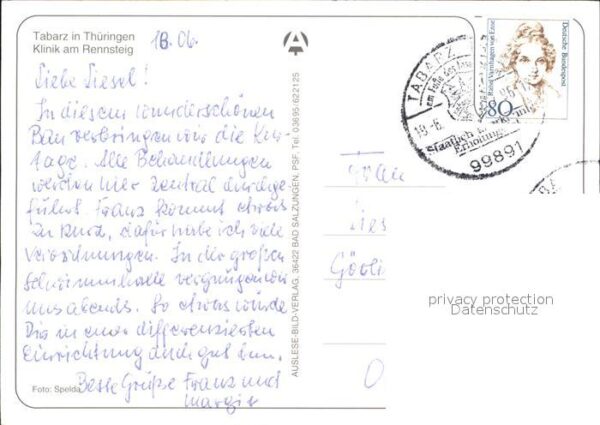 Tabarz in Thüringen
Klinik am Rennsteig
18.06.
Liebe Liesel!
In diesem wunderschönen
Bau verbringen wir die Kur-
tage. Alle Behandlungen
werden hier zentral durchge-
führt. Franz kommt etwas
zu kurz, dafür habe ich viele
Verordnungen. In der großen
Schwimmhalle vergnügen wir
uns abends. So etwas würde
Dir in einer differenzierten
Einrichtung auch gut tun.
Beste Grüße Franz und
Margit
Foto: Spelda
AUSLESE-BILD-VERLAG, 36422 BAD SALZUNGEN, PSF, Tel. 03695/622125
Deutsche Bundespost
Rahel Varnhagen von Ense
80
TABARZ
am Fuße des
18.-6.
Staatlich
Erholungs
99891
Frau
Lies
Görli
privacy protection
Datenschutz